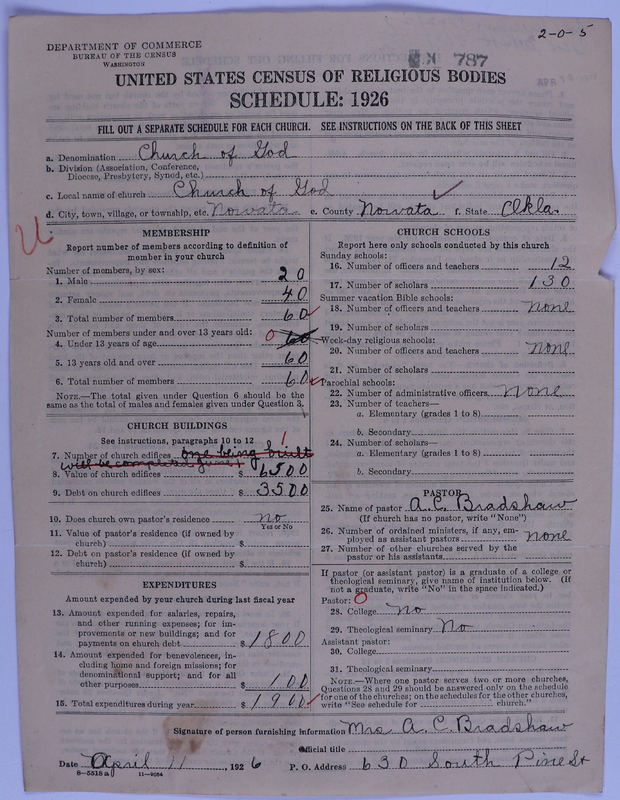 2-0-5
DEPARTMENT OF COMMERCE
BUREAU OF THE CENSUS
WASHINGTON
787
UNITED STATES CENSUS OF RELIGIOUS BODIES
SCHEDULE: 1926
FILL OUT A SEPARATE SCHEDULE FOR EACH CHURCH. SEE INSTRUCTIONS ON THE BACK OF THIS SHEET
a. Denomination Church of God
b. Division (Association, Conference,
Diocese, Presbytery, Synod, etc.)
c. Local name of church Church of God
d. City, town, village, or township, etc. Nowata e. County Nowata f. State Okla.
MEMBERSHIP
Report number of members according to definition of
member in your church
Number of members, by sex:
1. Male 20
2. Female 40
3. Total number of members 60
Number of members under and over 13 years old:
4. Under 13 years of age 0 60
5. 13 years old and over 60
6. Total number of members 60
NOTE.—The total given under Question 6 should be
same as the total of males and females given under Question 3.
CHURCH BUILDINGS
See instructions, paragraphs 10 to 12
7. Number of church edifices 1 one being built
will be completed June 1
8. Value of church edifices $ 6500
9. Debt on church edifices $ 3500
10. Does church own pastor's residence no
Yes or No
11. Value of pastor's residence (if owned by
church) $
12. Debt on pastor's residence (if owned by
church) $
EXPENDITURES
Amount expended by your church during last fiscal year
13. Amount expended for salaries, repairs,
and other running expenses; for im-
provements or new buildings; and for
payments on church debt $ 1800
14. Amount expended for benevolences, in-
cluding home and foreign missions; for
denominational support; and for all
other purposes $ 100
15. Total expenditures during year $ 1900
CHURCH SCHOOLS
Report here only schools conducted by this church
Sunday schools:
16. Number of officers and teachers 12
17. Number of scholars 130
Summer vacation Bible schools:
18. Number of officers and teachers none
19. Number of scholars
Week-day religious schools:
20. Number of officers and teachers none
21. Number of scholars
Parochial schools:
22. Number of administrative officers none
23. Number of teachers—
a. Elementary (grades 1 to 8)
b. Secondary
24. Number of scholars—
a. Elementary (grades 1 to 8)
b. Secondary
PASTOR
25. Name of pastor A. C. Bradshaw
(If church has no pastor, write "None")
26. Number of ordained ministers, if any, em-
ployed as assistant pastors none
27. Number of other churches served by the
pastor or his assistants
If pastor (or assistant pastor) is a graduate of a college or
theological seminary, give name of institution below. (If
not a graduate, write "No" in the space indicated.)
Pastor: 0
28. College No
29. Theological seminary No
Assistant pastor:
30. College
31. Theological seminary
NOTE.—Where one pastor serves two or more churches,
Questions 28 and 29 should be answered only on the schedule
for one of the churches; on the schedules for the other churches,
write "See schedule for church."
Signature of person furnishing information Mrs A. C. Bradshaw
Official title
Date April 11, 1926 P. O. Address 630 South Pine St
8-5518a 11-9054